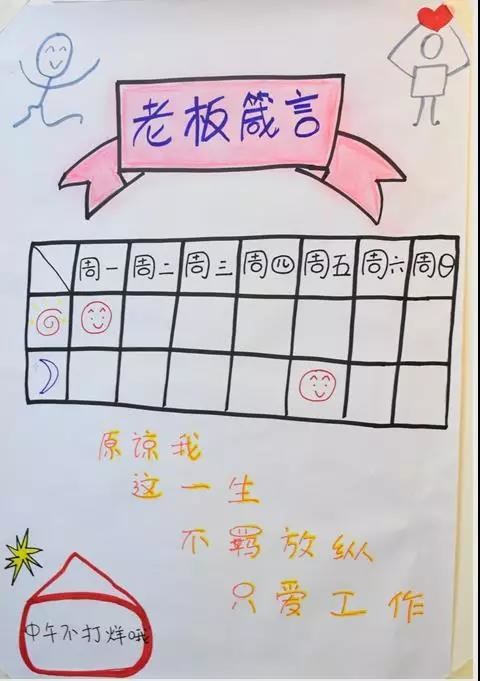 老板箴言
周一 周二 周三 周四 周五 周六 周日
原谅我
这一生
不羁放纵
只爱工作
中午不打烊哦